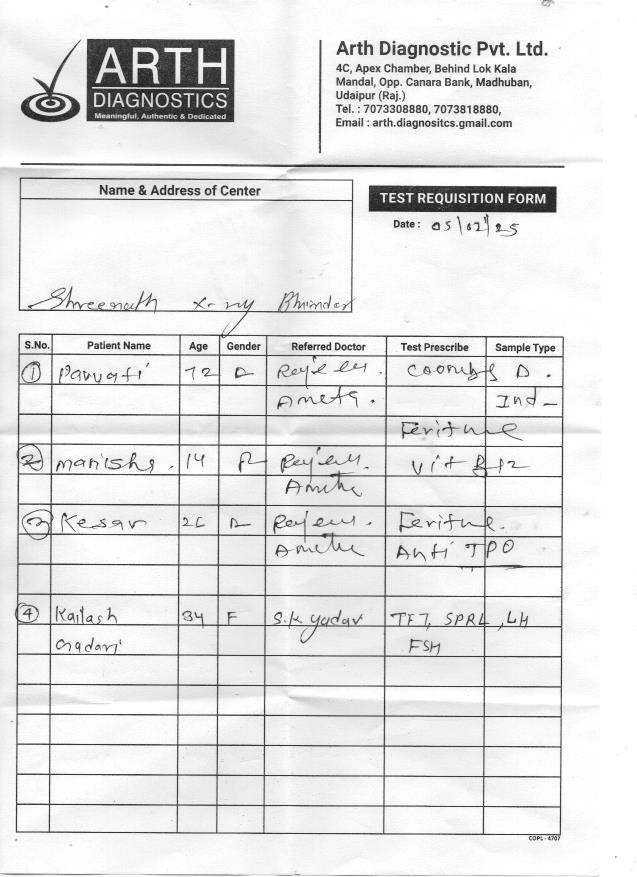 ARTH
DIAGNOSTICS
Meaningful, Authentic & Dedicated
Arth Diagnostic Pvt. Ltd.
4C, Apex Chamber, Behind Lok Kala
Mandal, Opp. Canara Bank, Madhuban,
Udaipur (Raj.)
Tel. : 7073308880, 7073818880,
Email : arth.diagnositcs.gmail.com
Name & Address of Center
TEST REQUISITION FORM
Date : 05/02/25
Shreenath x-ray Bhinder
S.No. Patient Name Age Gender Referred Doctor Test Prescribe Sample Type
1 Parvati 72 Coombs D.
Ameta. Ind-
2 Manisha. 14 Vit B12
3 Kesar
Anti TPO
4 Kailash 34 F S.K yadav TFT, SPRL, LH
FSH
COPL - 4707